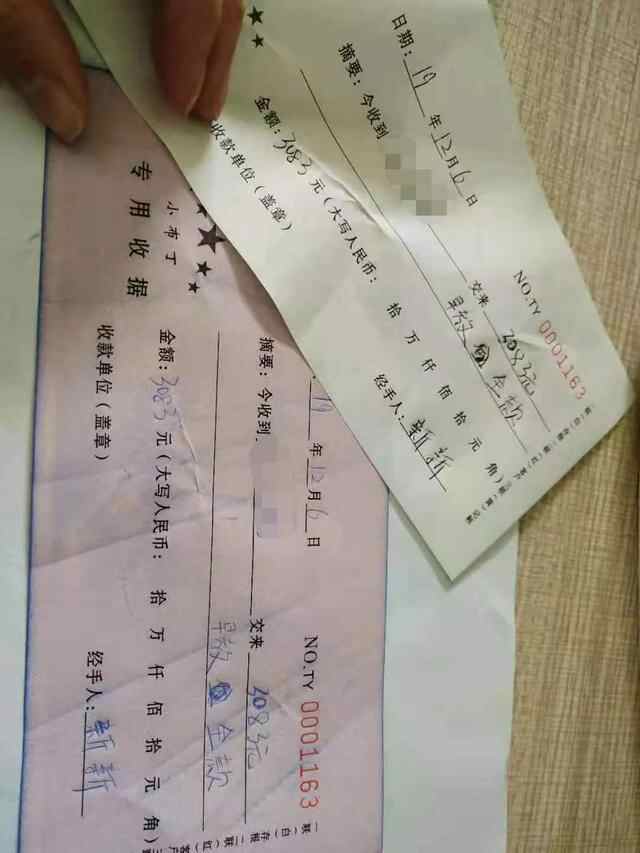 NO.TY 0001163
日期：19年12月6日
摘要：今收到 交来 3083元
早教 全款
金额：3083元（大写人民币： 拾 万 仟 佰 拾 元 角
收款单位（盖章） 经手人：新新
NO.TY 0001163
19年12月6日
摘要：今收到 交来 3083元
早教 全款
小布丁
专用收据
金额：3083元（大写人民币： 拾 万 仟 佰 拾 元 角）
收款单位（盖章） 经手人：新新